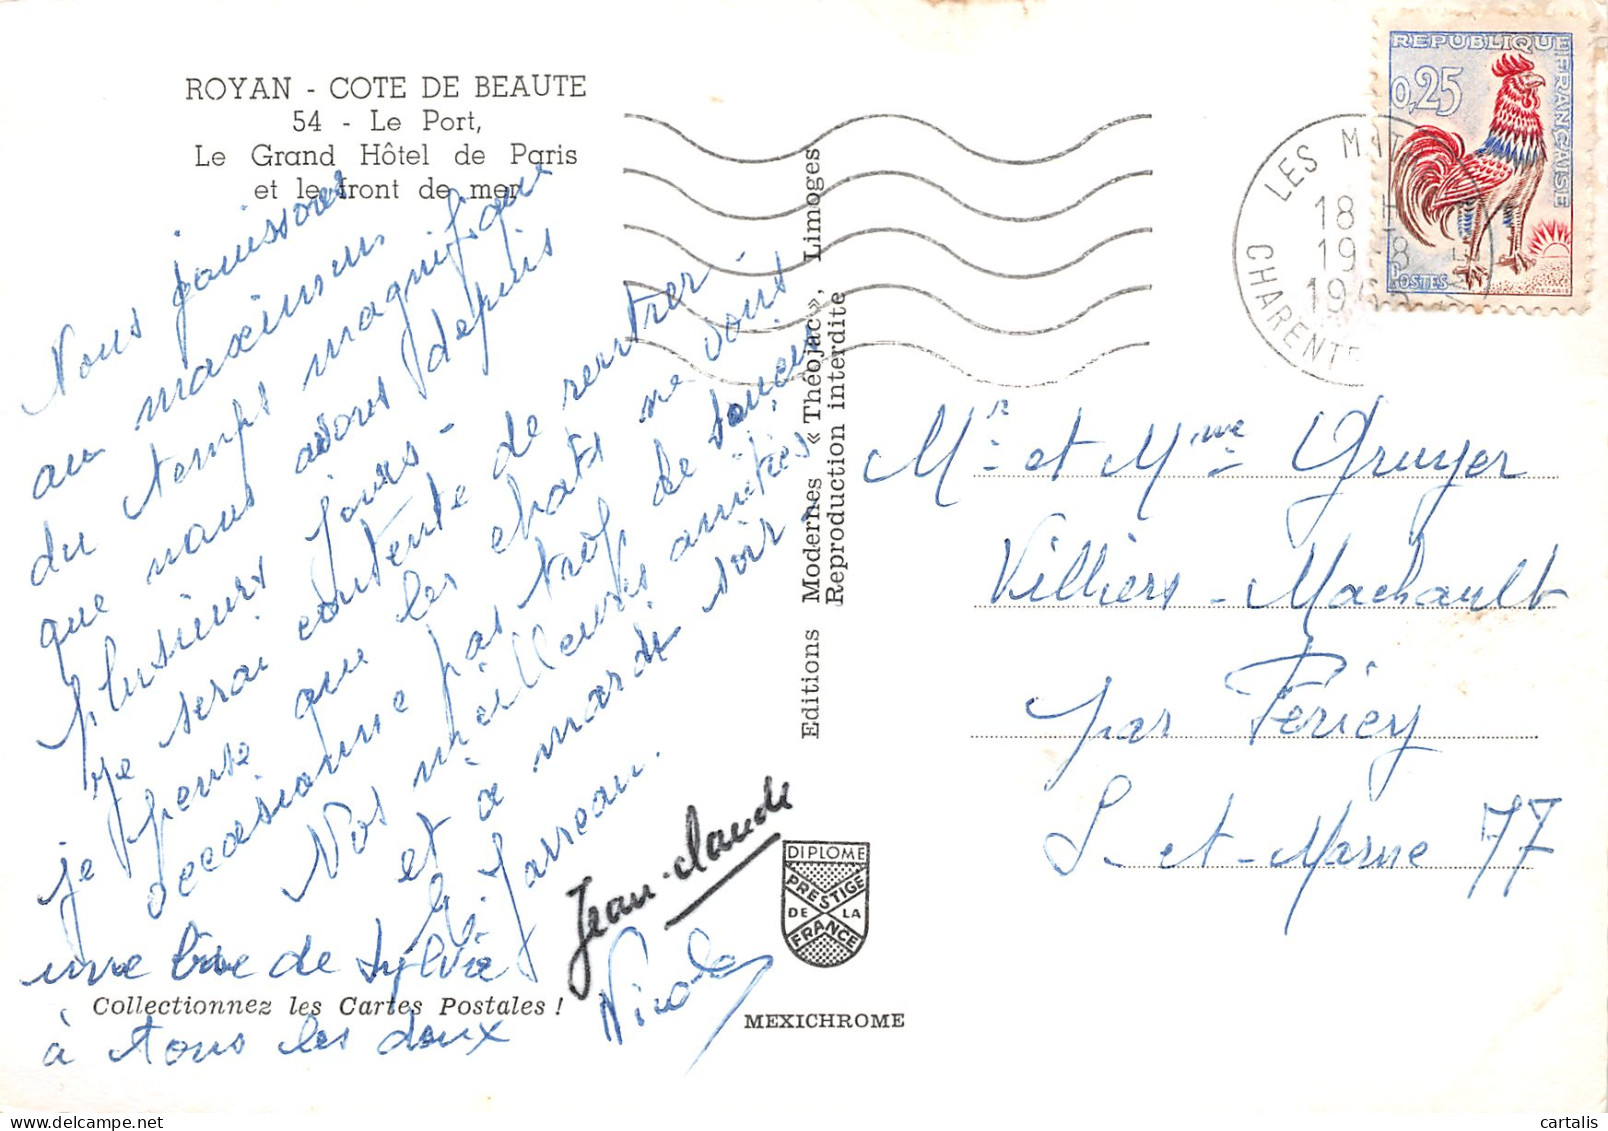 ROYAN - COTE DE BEAUTE
54 - Le Port,
Le Grand Hôtel de Paris
et le front de mer
Nous jouissons
au maximum
du temps magnifique
que nous avons depuis
plusieurs jours -
je serai contente de rentrer -
je pense que les chats ne vous
occasionne pas trop de soucis
Nos meilleures amitiés
et à mardi soir -
Jarreau.
une bise de Sylvie
à tous les deux
Jean-Claude
Nicole
Collectionnez les Cartes Postales !
Editions Modernes « Théojac », Limoges
Reproduction interdite
DIPLOME
PRESTIGE
DE LA
FRANCE
MEXICHROME
REPUBLIQUE
FRANÇAISE
0,25
POSTES
LES MAT
18 H
19-8
19
CHARENTE
Mr et Mme Gruyer
Villiers - Machault
par Féricy
S-et-Marne 77
© cartalis delcampe.net